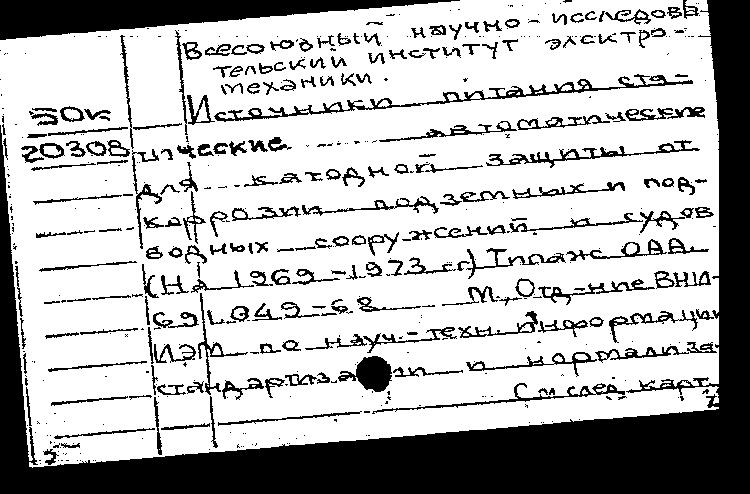 Всесоюзный научно-исследова-
тельский институт электро-
механики.
Источники питания ста-
тические автоматические
для катодной защиты от
коррозии подземных и под-
водных сооружений и судов
(На 1969-1973 гг) Типаж ОАА.
691.049-68 М., Отд-ние ВНИ-
ИЭМ по науч.-техн. информации
стандартизации и нормализа-
См след. карт.
30к
20308